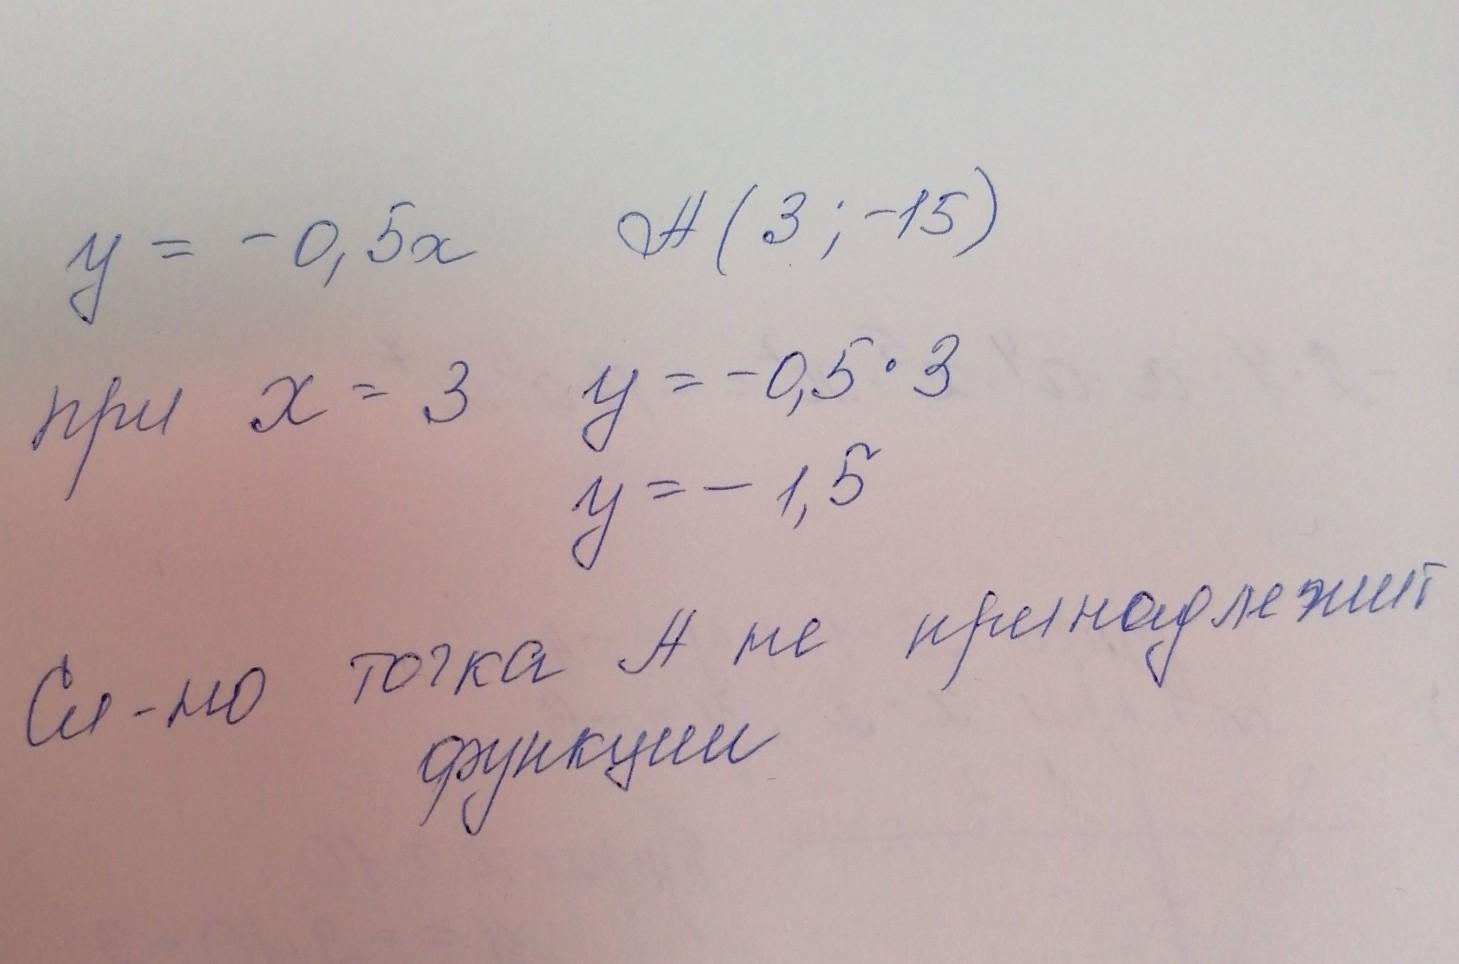 y = -0,5x A(3; -15)
при x = 3 y = -0,5 · 3
y = - 1,5
Сл-но точка A не принадлежит
функции